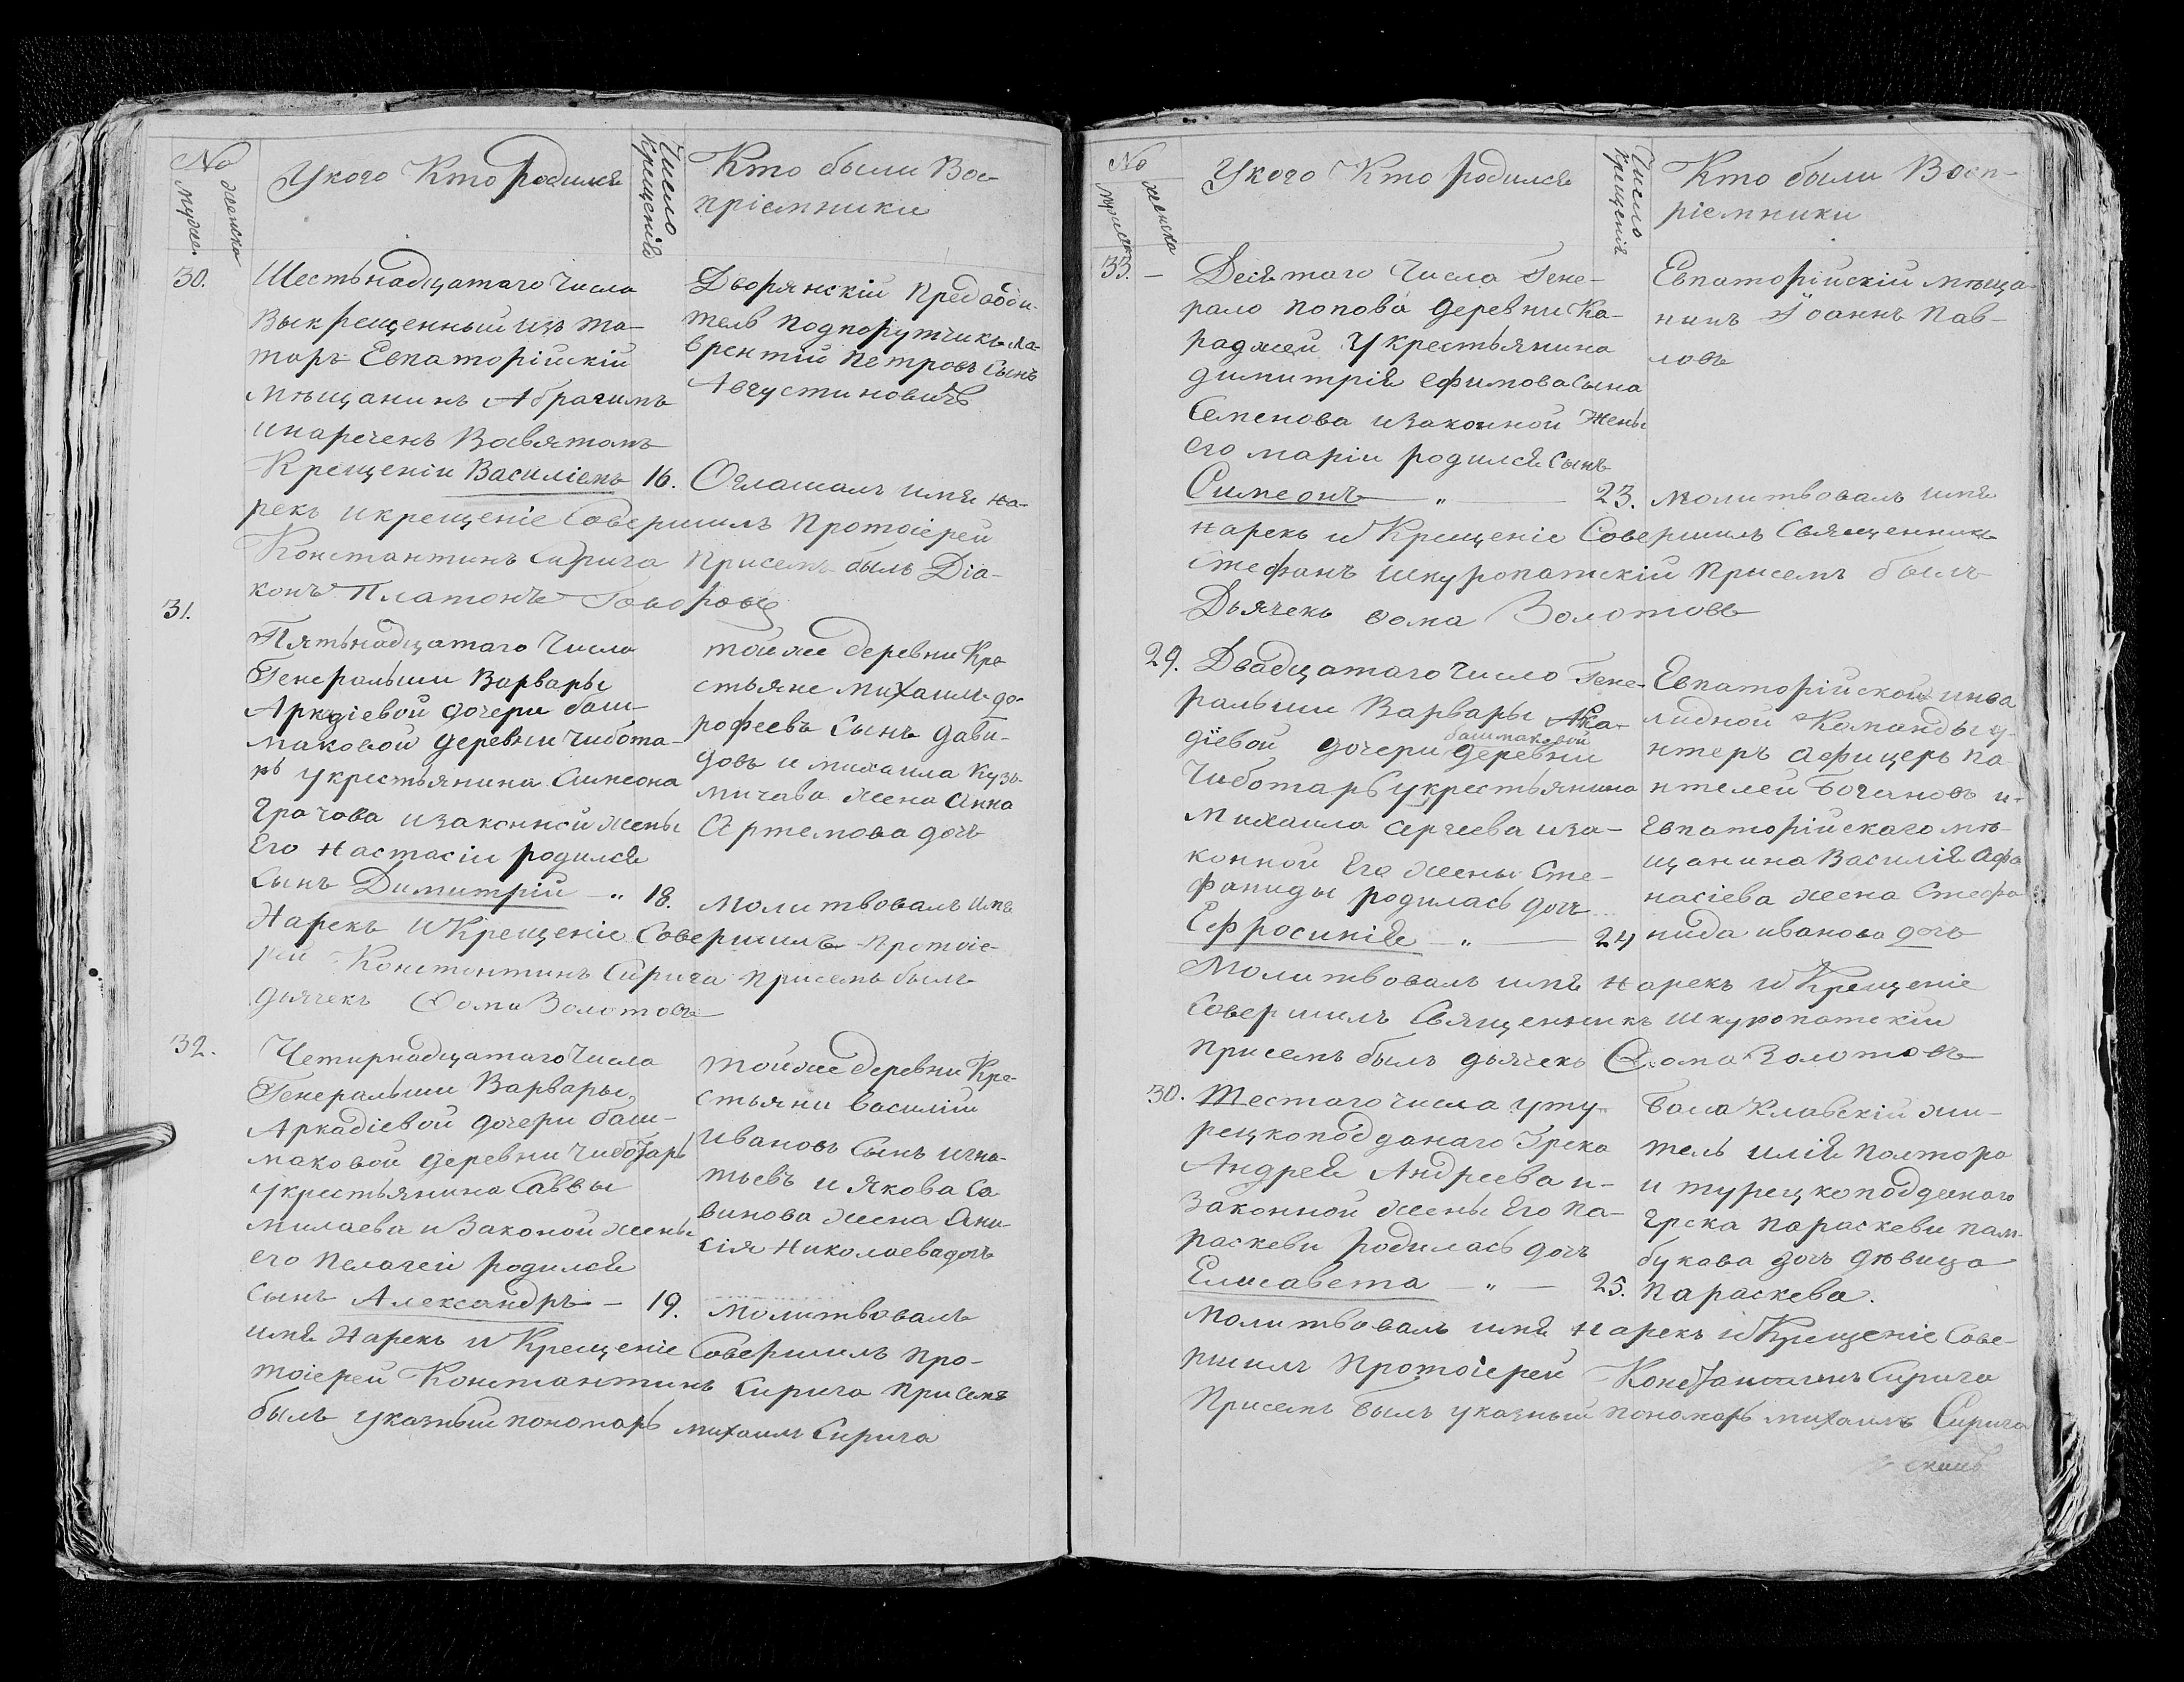 No
мужес.
женска
У кого Кто Родился
Число крещенія
Кто были Вос-
пріемники
30.
Шестьнадцатаго Числа
Выкрещенный изъ та-
таръ Евпаторійскій
мѣщанинъ Абрагимъ
инареченъ Восвятомъ
Крещеніи Василіемъ 16.
Дворянскій Предводи-
тель подпорутчикъ Ла-
врентій Петровъ сынъ
Августиновичь
Оглашалъ имя на-
рекъ и крещеніе Совершилъ Протоіерей
Константинъ Спирига Присемъ былъ Діа-
конъ Платонъ
31.
Пятьнадцатаго Числа
Генеральши Варвары
Аркадіевой дочери баш-
маковой деревни Чибота-
рь укрестьянина Симеона
Грачова изаконной жены
Его Настасіи родился
Сынъ Димитрій — " 18.
тойже деревни Кре
стьяне михаилъ до-
рофеевъ Сынъ дави-
довъ и михаила Кузь-
мичава жена Анна
Артемова дочь
Молитвовалъ имя
Нарекъ и Крещеніе Совершилъ протоіе-
рей Константинъ Спирига присемъ былъ
дьячекъ Ѳома Золотовъ
32.
Четирнадцатаго Числа
Генеральши Варвары
Аркадіевой дочери баш-
маковой деревни Чиботарь
укрестьянина Саввы
милаева и Законой жены
его Пелагеи родился
Сынъ Александръ — 19.
тойже деревни Кре-
стьяни василій
Ивановъ Сынъ игна-
тьевъ и Якова Са
винова жена Ани-
сія Николаева дочь
Молитвовалъ
имя Нарекъ и Крещеніе Совершилъ про-
тоіерей Константинъ Спирига присемъ
былъ указный пономарь михаилъ Спирига
No
мужеск
женска
У кого Кто родился
Число крещенія
Кто были Восп-
ріемники
33. —
Десятаго Числа Гене-
рало попова деревни Ка-
раджей Укрестьянина
димитрія ефимова сына
Семенова изаконной жены
его маріи родился сынъ
Симеонъ — " — 23.
Евпаторійскій мѣща-
нинъ Іоаннъ Пав-
ловъ
молитвовалъ имя
нарекъ и Крещеніе Совершилъ Священникъ
Стефанъ Шкуропатскій Присемъ былъ
Дьячекъ Ѳома Золотовъ
29.
Двадцатаго Число Гене-
ральши Варвары Арка-
діевой дочери башмаковой деревни
Чиботарь укрестьянина
Михаила Сергеева иза-
конной Его жены Сте-
фаниды родилась дочь
Ефросинія — " — 24
Евпаторійской инва
лидной Команды у-
нтеръ афицеръ Па
нтелей Богановъ и-
Евпаторійскаго мѣ-
щанина Василія Афа
насіева жена Стефа
нида иванова дочь
Молитвовалъ имя нарекъ и Крещеніе
Совершилъ Священникъ Шкуропатскій
присемъ былъ дьячекъ Ѳома Золотовъ
30.
Шестаго числа уту-
рецкоподданаго Грека
Андрея Андреева и-
законной жены Его Па-
раскеви родилась дочь
Елисавета — " — 25.
Балаклавскій жи-
тель илія полтора
и турецкоподданаго
грека параскеви пам-
букова дочь дѣвица
Параскева.
Молитвовалъ имя нарекъ и Крещеніе Сове-
ршилъ Протоіерей Константинъ Спирига
Присемъ былъ указный пономарь михаилъ Спирига